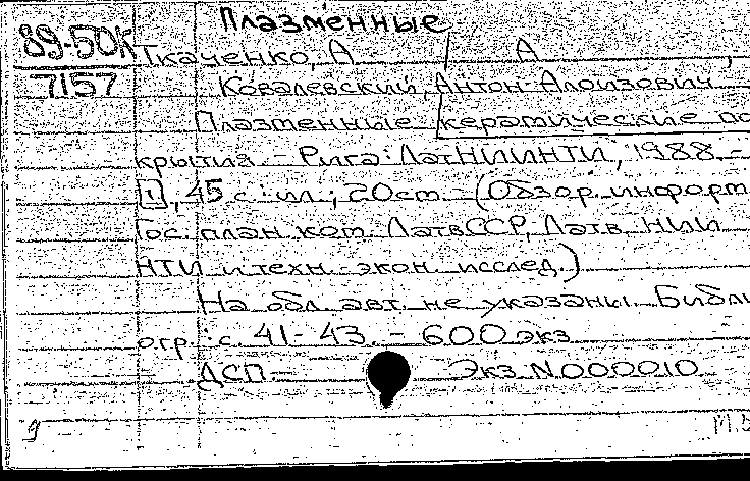 Плазменные
89-50К
7157
Ткаченко, А А ,
Ковалевский, Антон Алоизович
Плазменные керамические по
крытия. - Рига: ЛатНИИНТИ, 1988. -
[1], 45 с.: ил.; 20 см. - (Обзор. информ.
Гос. план. ком. ЛатвССР, Латв. НИИ
НТИ и техн.-экон. исслед.)
На обл. авт. не указаны. Библи
огр.: с. 41-43. - 600 экз.
ДСП. - Экз. N 000010
9